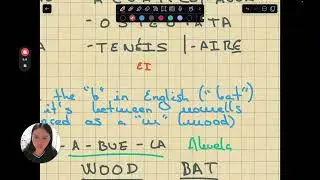 - TENÉIS |- AIRE
EI
the "b" in English ("bat")
it's between vowells
as a "w" (wood)
- A - BUE - LA Abuela
WOOD BAT